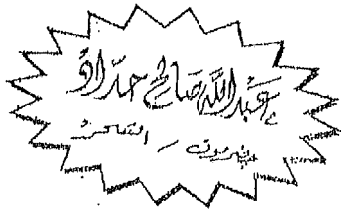 عبدالله صالح حداد
حضرموت – الشحر